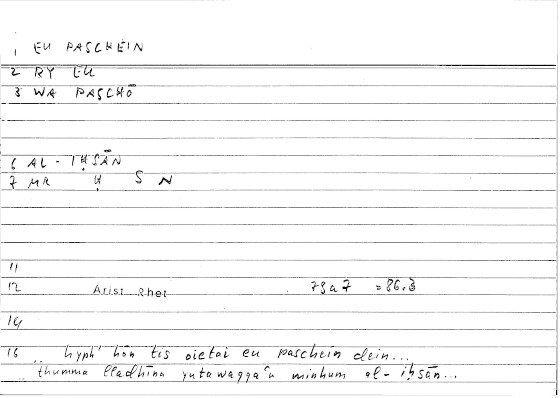 1 EU PASCHEIN
2 RY EU
3 WA PASCHŌ
6 AL-IḤSĀN
7 MR Ḥ S N
11
12 Arist Rhet 79a7 =86.3
14
16 .. hyph' hōn tis oietai eu paschein dein...
.. thumma lladhīna yutawaqqaʿu minhum al-iḥsān...